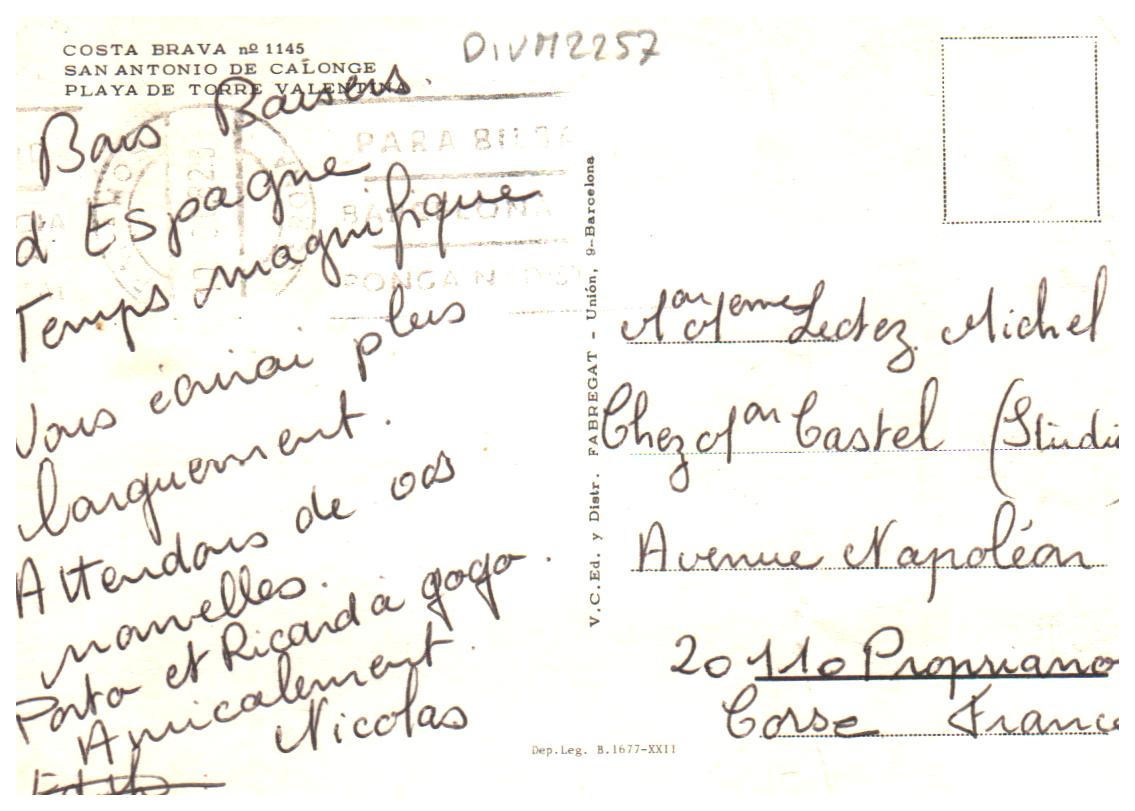 DIVM2257
COSTA BRAVA nº 1145
SAN ANTONIO DE CALONGE
PLAYA DE TORRE VALENTINA
Bons Baisers.
d'Espagne
Temps magnifique
Vous écrirai plus
longuement.
Attendons de vos
nouvelles.
Porto et Ricard à gogo.
Amicalement.
Nicolas
Edith
PARA
BARCELONA
PONGA
V.C.Ed. y Distr. FABREGAT - Unión, 9-Barcelona
Lectez Michel
Chez Castel (Studi
Avenue Napoléon
20110 Propriano
Corse France
Dep.Leg. B.1677-XXII